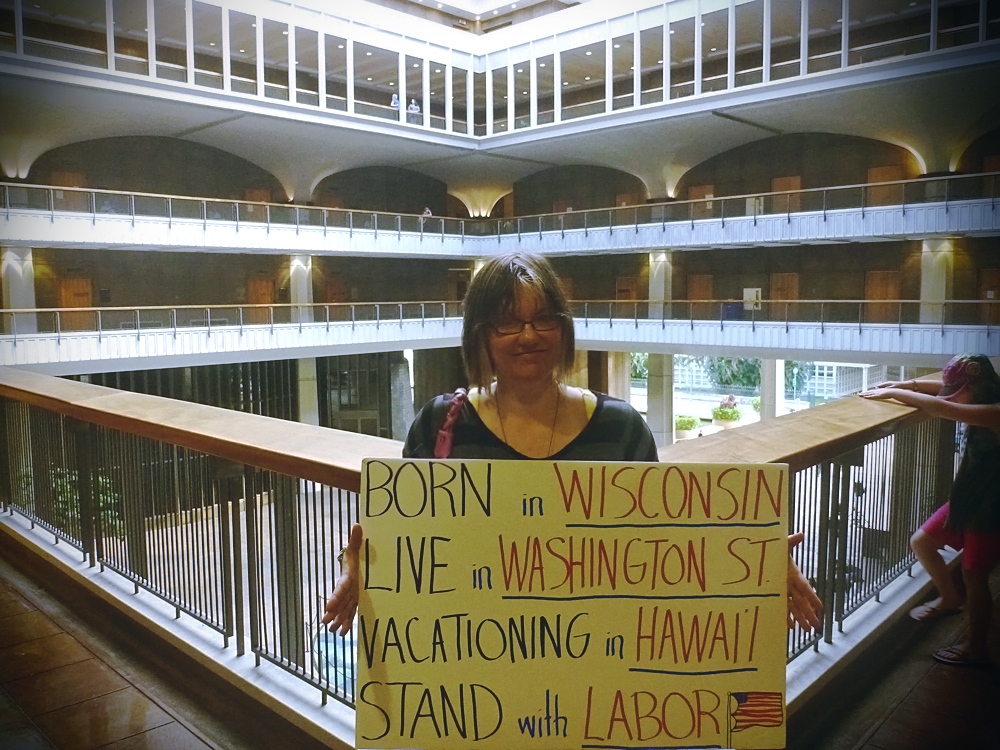 BORN in WISCONSIN
LIVE in WASHINGTON ST.
VACATIONING in HAWAI'I
STAND with LABOR